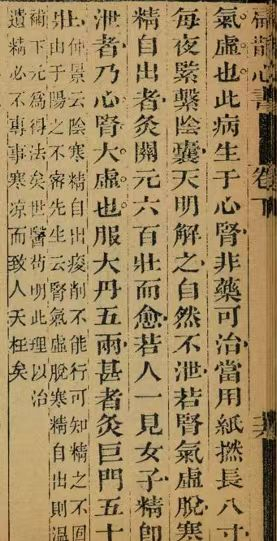 心書 卷下
氣虛也此病生于心腎非藥可治當用紙撚長八寸
每夜緊繫陰囊天明解之自然不泄若腎氣虛脫寒
精自出者灸關元六百壯而愈若人一見女子精即
泄者乃心腎大虛也服大丹五兩甚者灸巨門五十
壯仲景云陰寒精自出痠削不能行可知精之不固
由于陽之不密先生云腎氣虛脫寒精自出則溫
補下元為得法矣世醫苟明此理以治
遺精必不專事寒涼而致人夭枉矣